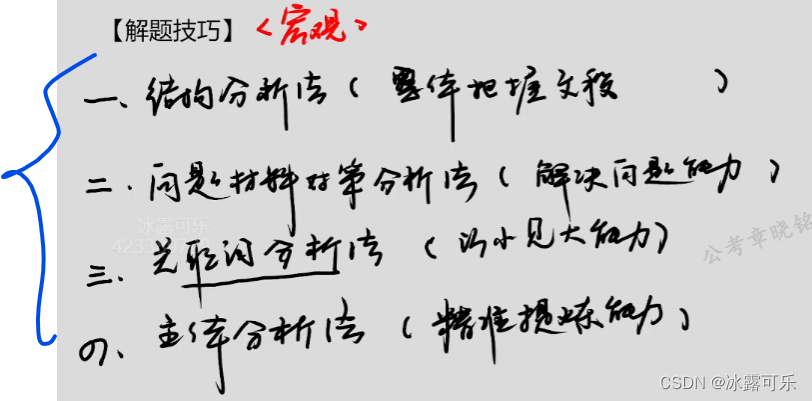 【解题技巧】<宏观>
一、结构分析法(整体把握文段)
二.问题材料对策分析法(解决问题能力)
三.关联词分析法(以小见大能力)
四、主体分析法(精准提炼能力)
冰露可乐
公考章晓铭
CSDN @冰露可乐